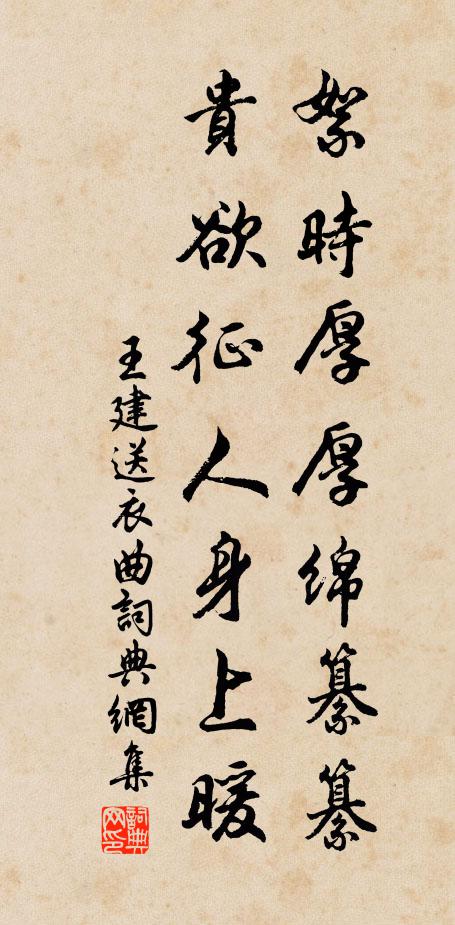 絮時厚厚綿纂纂
貴欲征人身上暖
王建送衣曲詞典網集
詞典網印